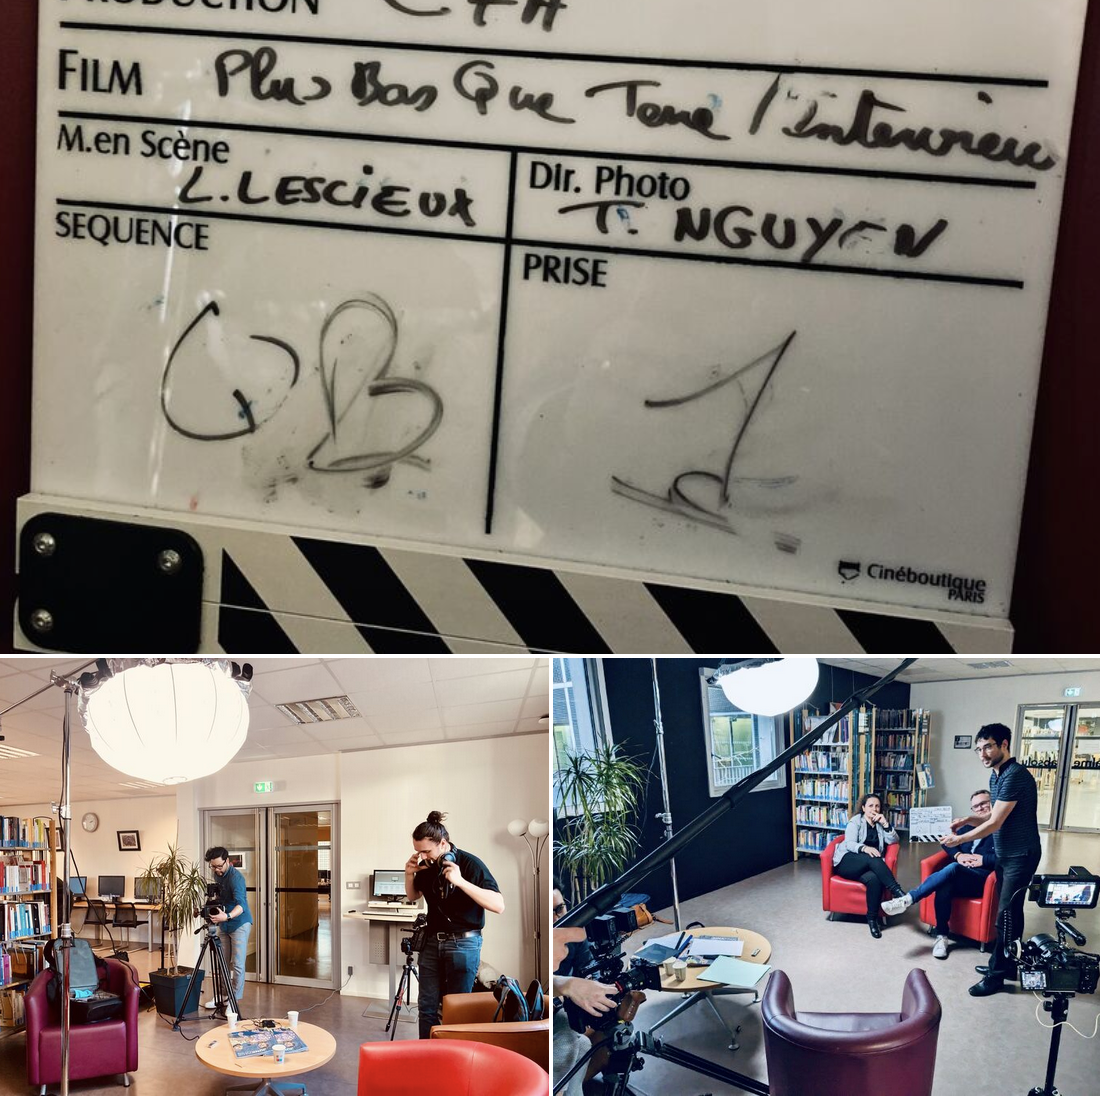 PRODUCTION CFA
FILM Plus Bas Que Terre / Interview
M.en Scène L. LESCIEUX
Dir. Photo T. NGUYEN
SEQUENCE
PRISE
1
Cinéboutique
PARIS